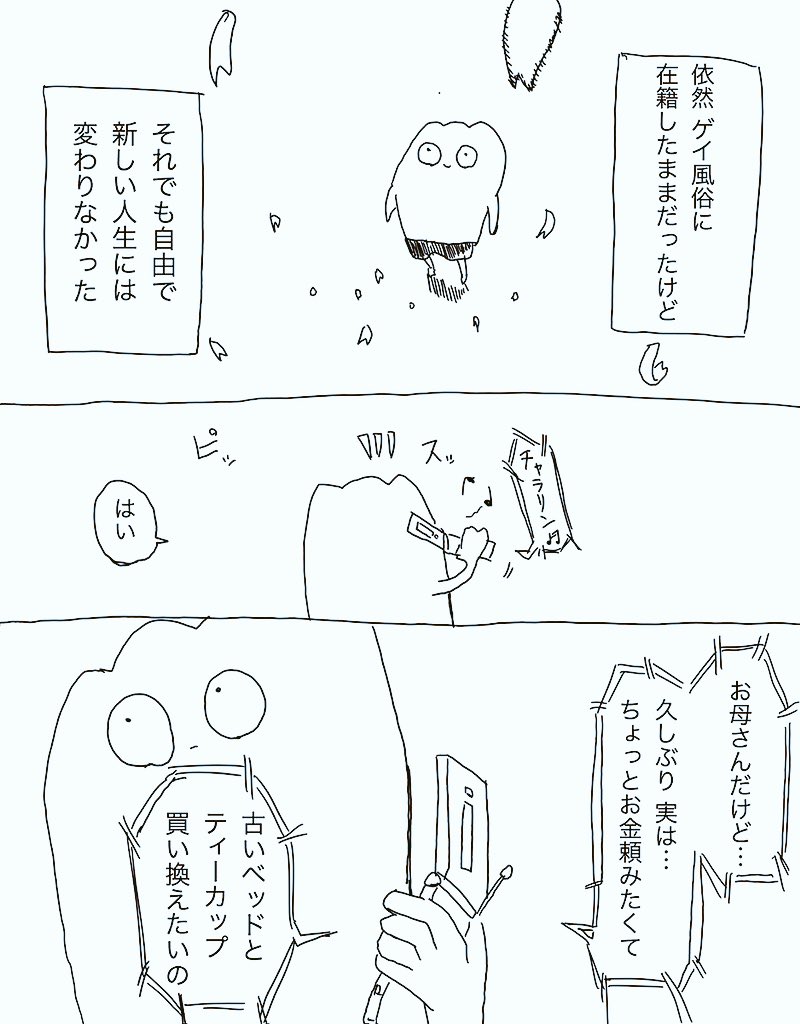 依然 ゲイ風俗に
在籍したままだったけど
それでも自由で
新しい人生には
変わりなかった
チャラリン♫
スッ
ピッ
はい
お母さんだけど…
久しぶり 実は…
ちょっとお金頼みたくて
古いベッドと
ティーカップ
買い換えたいの